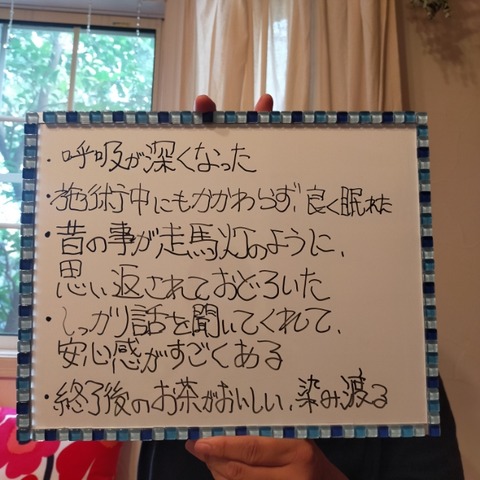 ・呼吸が深くなった
・施術中にもかかわらず、良く眠れた
・昔の事が走馬灯のように、
思い返されておどろいた
・しっかり話を聞いてくれて、
安心感がすごくある
・終了後のお茶がおいしい、染み渡る